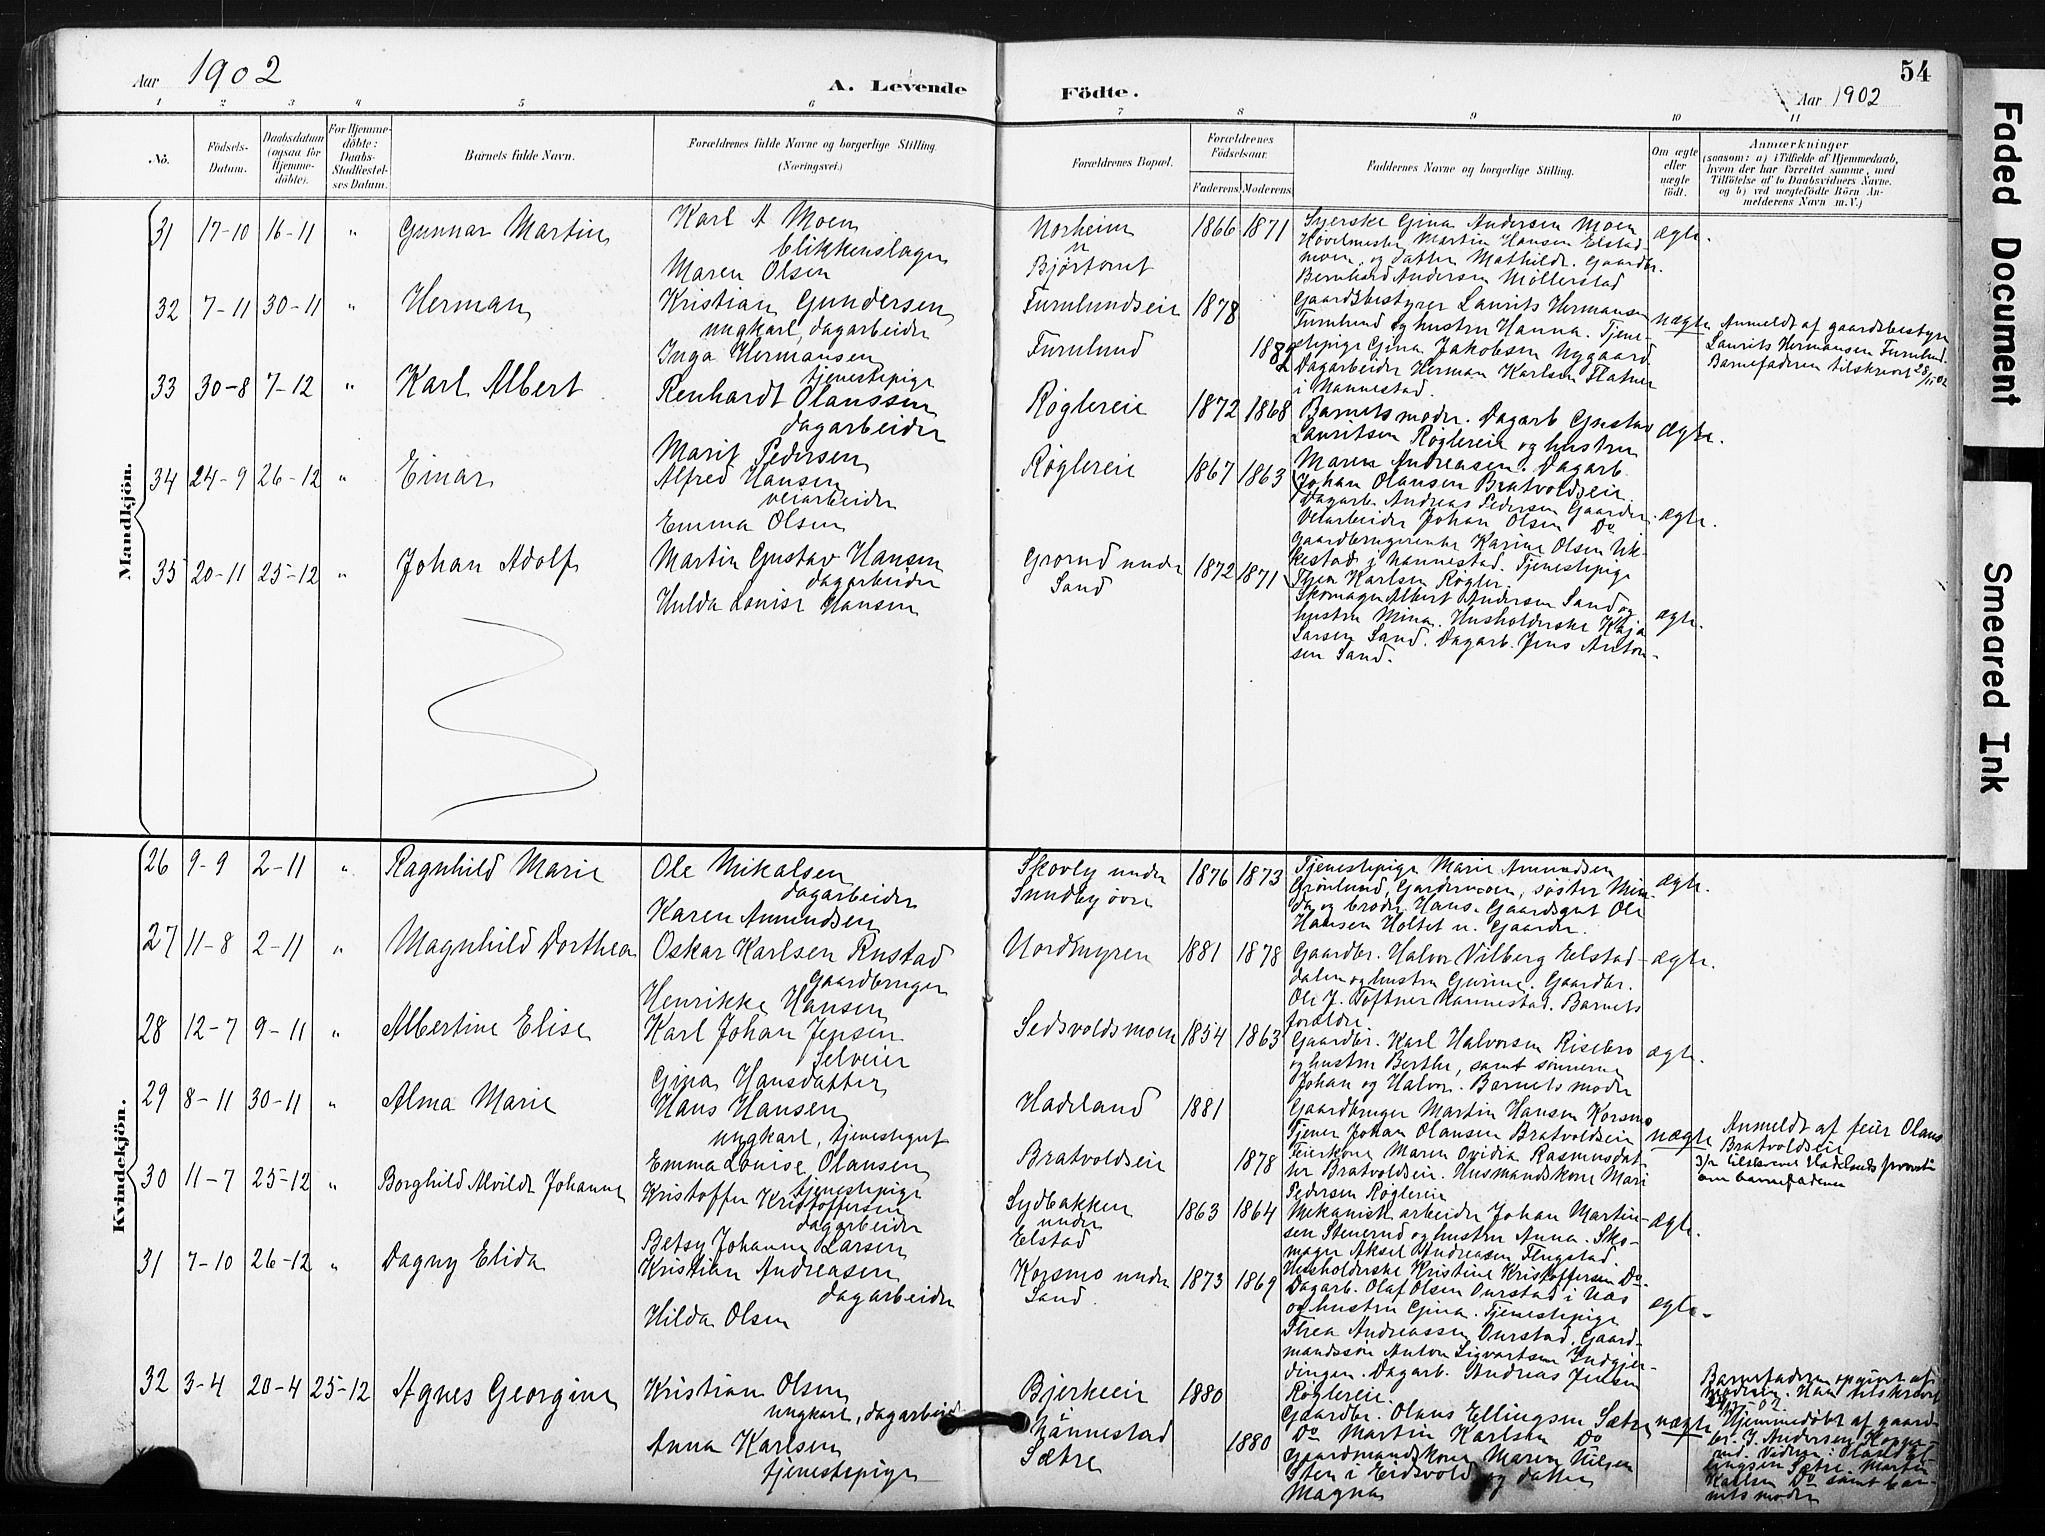 Aar 1902
A. Levende Födte.
Aar 1902
54
1 2 3 4 5 6 7 8 9 10 11
No.
Födsels-
Datum.
Daabsdatum
(ogsaa for
Hjemme-
döbte).
For Hjemme-
döbte:
Daabs-
Stadfæstel-
ses Datum.
Barnets fulde Navn.
Forældrenes fulde Navne og borgerlige Stilling.
(Næringsvei.)
Forældrenes Bopæl.
Forældrenes
Födselsaar.
Faderens Moderens
Faddernes Navne og borgerlige Stilling.
Om ægte
eller
uægte
födt.
Anmærkninger
(saasom: a) i Tilfælde af Hjemmedaab,
hvem der har forrettet samme, med
Tilföielse af to Daabsvidners Navne.
og b) ved uegtefödte Börn An-
melderens Navn m.V.)
Mandkjön.
31 17-10 16-11 " Gunnar Martin
Karl A Moen
blikkenslager
Maren Olsen
Norheim
u
Bjørtomt
1866 1871
Syerske Gina Andersen Moen
Høvelmester Martin Hansen Elstad-
moen, og datter Mathilde. Gaardbr.
Bernhard Andersen Møllerstad
ægte.
32 7-11 30-11 " Herman
Kristian Gundersen
ungkarl, dagarbeider
Inga Hermansen
tjenestepige
Furulundseie
Furulund
1878
1882
Gaardsbestyrer Laurits Hermansen
Furulund og hustru Hanna. Tjene-
stepige Gina Jakobsen Nygaard
Dagarbeider Herman Karlsen Flatner
i Nannestad.
uægte
Anmeldt af gaardsbestyrer
Laurits Hermansen Furulund.
Barnefaderen tilskrevet 28/11 02
33 30-8 7-12 " Karl Albert
Renhardt Olaussen
dagarbeider
Marit Pedersen
Røglereie
1872 1868
Barnets moder. Dagarb Gustav
Lauritsen Røglereie og hustru
Maren Andreasen. Dagarb.
Johan Olausen Bratvoldseie.
ægte.
34 24-9 26-12 " Einar
Alfred Hansen
veiarbeider
Emma Olsen
Røglereie
1867 1863
Dagarb. Andreas Pedersen Gaarder.
Veiarbeider Johan Olsen Do
Gaardbrugerenke Karine Olsen Ik-
kestad i Nannestad. Tjenestepige
Thea Karlsen Røgler.
ægte.
35 20-11 25-12 " Johan Adolf
Martin Gustav Hansen
dagarbeider
Hulda Louise Hansen
Grorud under
Sand
1872 1871
Skomager Albert Andersen Sand og
hustru Mina. Husholderske Kaja
Larsen Sand. Dagarb. Jens Anton-
sen Sand.
ægte.
Kvindekjön.
26 9-9 2-11 " Ragnhild Marie
Ole Mikalsen
dagarbeider
Karen Amundsen
Skovly under
Sundby øvre
1876 1873
Tjenestepige Marie Amundsen
Grønlund, Gardermoen, søster Min-
da og broder Hans. Gaardsgut Ole
Hansen Holtet u. Gaarder.
ægte.
27 11-8 2-11 " Magnhild Dorthea
Oskar Karlsen Rustad
Gaardbruger
Henrikke Hansen
Nordmyren
1881 1878
Gaardbr. Halvor Vilberg Elstad-
dalen og hustru Gurine. Gaardbr.
Ole J. Toftner Nannestad. Barnets
forældre
ægte.
28 12-7 9-11 " Albertine Elise
Karl Johan Jensen
Selveier
Gina Hansdatter
Sedsvoldsmoen
1854 1863
Gaardbr. Karl Halvorsen Risebro
og hustru Berthe, samt sønnerne
Johan og Halvor. Barnets moder
ægte.
29 8-11 30-11 " Alma Marie
Hans Hansen
ungkarl, tjenestegut
Emma Louise Olausen
tjenestepige
Hadeland
Bratvoldseie
1881
1878
Gaardbruger Martin Hansen Korsmo
Tjener Johan Olausen Bratvoldseie
Feierkone Maren Ovidia Rasmusdat-
ter Bratvoldseie. Husmandskone Mari
Pedersen Røglereie
uægte
Anmeldt af feier Olaus
Bratvoldseie
3/12 tilskrevet Hadelands provsti
om barnefaderen
30 11-7 25-12 " Borghild Alvilde Johanne
Kristoffer Kristoffersen
dagarbeider
Betsy Johanne Larsen
Sydbakken
under
Elstad
1863 1864
Mekanisk arbeider Johan Martin-
sen Stenerud og hustru Anna. Sko-
mager Aksel Andreasen Flugstad.
Husholderske Kristine Kristoffersen Do.
ægte.
31 7-10 26-12 " Dagny Elida
Kristian Andreasen
dagarbeider
Hilda Olsen
Korsmo under
Sand.
1873 1869
Dagarb. Olaf Olsen Ourstad i Næs
og hustru Gina. Tjenestepige
Thea Andreassen Ourstad. Gaard-
mandssøn Anton Sigvartsen Indgjer-
dingen. Dagarb. Andreas Jensen
Røglereie.
ægte.
32 3-4 20-4 25-12 Agnes Georgine
Kristian Olsen
ungkarl, dagarbeid
Anna Karlsen
tjenestepige
Bjerkeeie
Nannestad
Sætre
1880
1880
Gaardbr. Olaus Ellingsen Sætre
Do Martin Karlsen Do
Gaardmandskone Maren Nilsen
Sten i Eidsvold og datter
Magna
uægte
Barnefaderen opgivet af
moderen. Han tilskrevet
Hjemmedøbt af gaard-
br. J. Andersen
Vidner: Olaus El-
lingsen Sætre. Martin
Karlsen Do samt bar-
nets moder
Faded Document
Smeared Ink